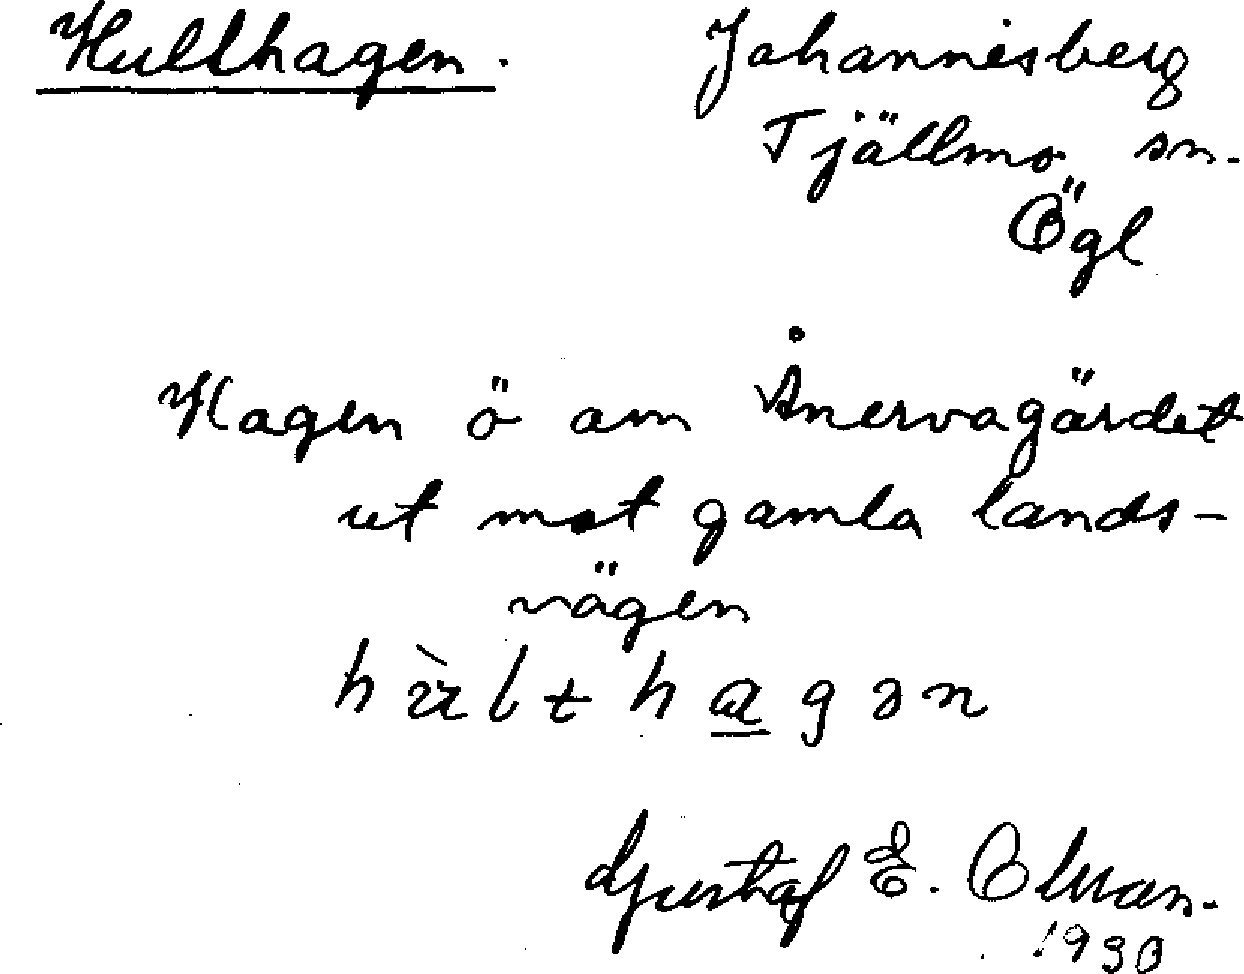 Hulthagen. Johannisberg
Tjällmo sn.
Ögl
Hagen ö om Ånervagärdet
ut mot gamla lands-
vägen
Gustaf E. Olsson.
1930